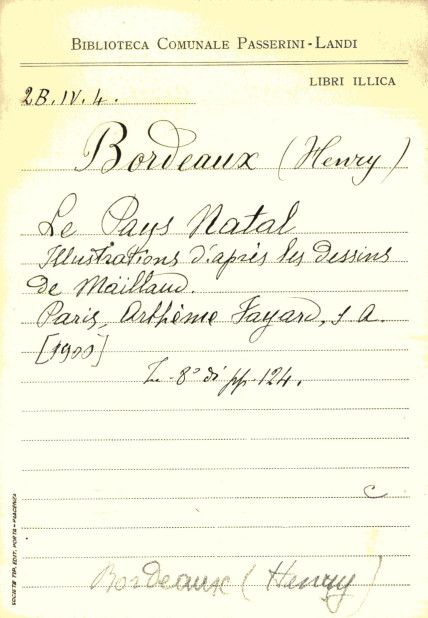 BIBLIOTECA COMUNALE PASSERINI-LANDI
LIBRI ILLICA
2B.IV.4.
Bordeaux (Henry)
Le Pays Natal
Illustrations d'après les dessins
de Maillaud.
Paris, Arthème Fayard, s. a.
[1900]
In-8° di pp. 124.
C
SOCIETÀ TIP. EDIT. PORTA - PIACENZA
Bordeaux (Henry)